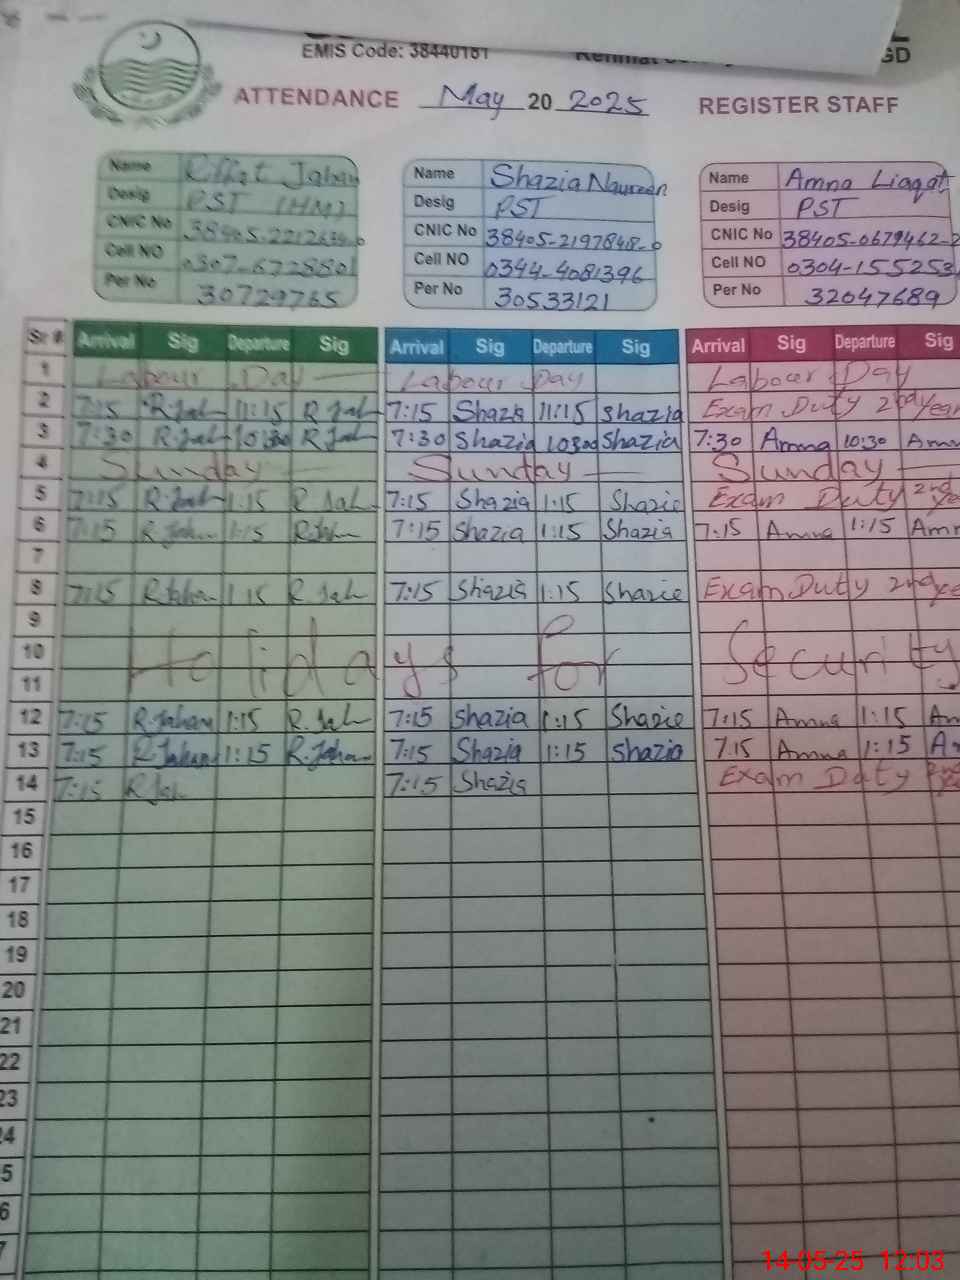 EMIS Code: 38440161
GD
ATTENDANCE May 20 2025 REGISTER STAFF
Name Riffat Jahan Name Shazia Naureen Name Amna Liaqat
Desig PST (HM) Desig PST Desig PST
CNIC No CNIC No 38405-2197848-0 CNIC No 38405-0679462-2
Cell NO 0307-6728801 Cell NO 0344-4081396 Cell NO 0304-155253
Per No 30729765 Per No 30533121 Per No 32047689
Sr # Arrival Sig Departure Sig Arrival Sig Departure Sig Arrival Sig Departure Sig
1 Labour Day Labour Day Labour Day
2 7:15 R.Jah 11:15 R Jah 7:15 Shazia 11:15 Shazia Exam Duty 2nd Year
3 7:30 R.Jah 10:30 R Jah 7:30 Shazia 10:30 Shazia 7:30 Amna 10:30 Amn
4 Sunday Sunday Sunday
5 7:15 R.Jah 1:15 R.Jah 7:15 Shazia 1:15 Shazia Exam Duty 2nd Ye
6 7:15 R Jahan 1:15 R.Jah 7:15 Shazia 1:15 Shazia 7:15 Amna 1:15 Amn
7
8 7:15 R Jahan 1:15 R Jah 7:15 Shazia 1:15 Shazia Exam Duty 2nd ye
9
10 Holidays for Security
11
12 7:15 R.Jahan 1:15 R.Jah 7:15 Shazia 1:15 Shazia 7:15 Amna 1:15 Am
13 7:15 R.Jahan 1:15 R.Jahan 7:15 Shazia 1:15 Shazia 7:15 Amna 1:15 A
14 7:15 R Jah 7:15 Shazia Exam Duty 2nd Ye
15
16
17
18
19
20
21
22
23
24
5
6
7
14-05-25 12:03